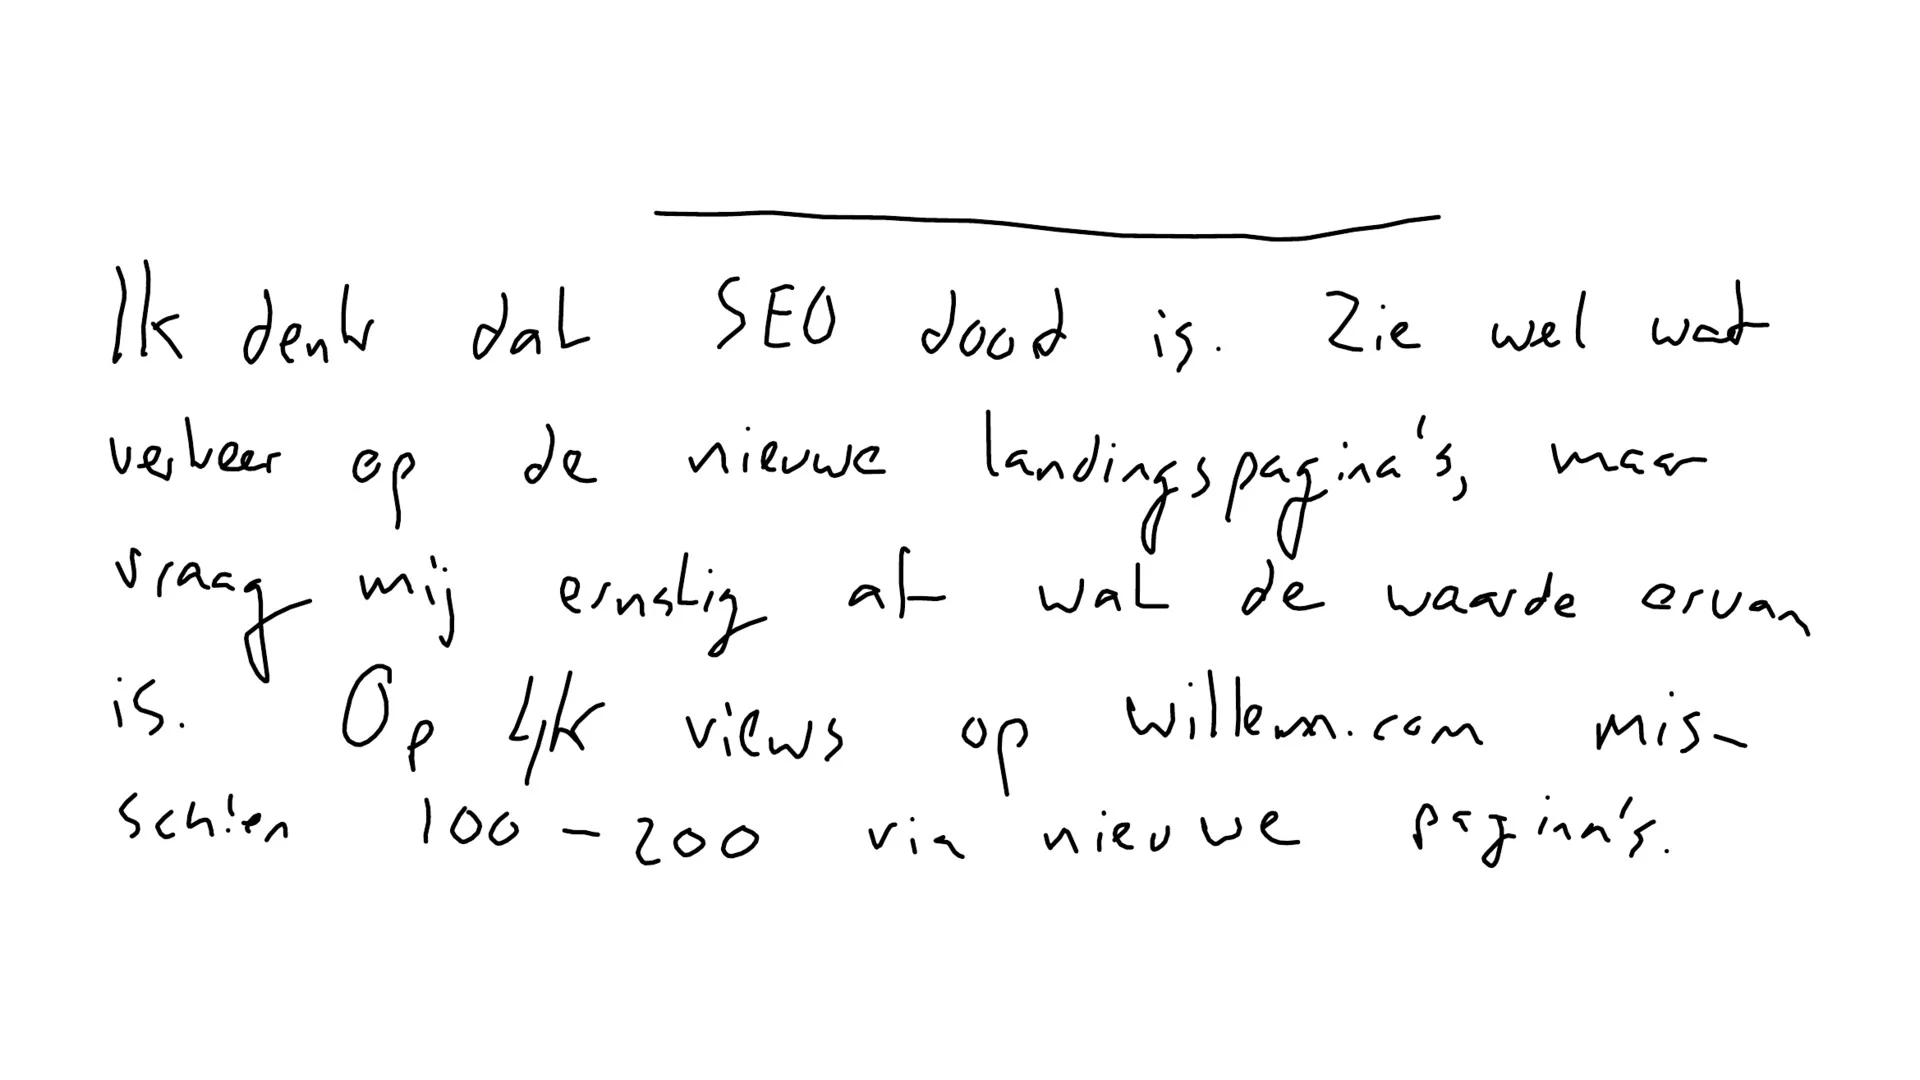 Ik denk dat SEO dood is. Zie wel wat
verkeer op de nieuwe landingspagina's, maar
vraag mij ernstig af wat de waarde ervan
is. Op 4k views op willem.com mis-
schien 100-200 via nieuwe pagina's.